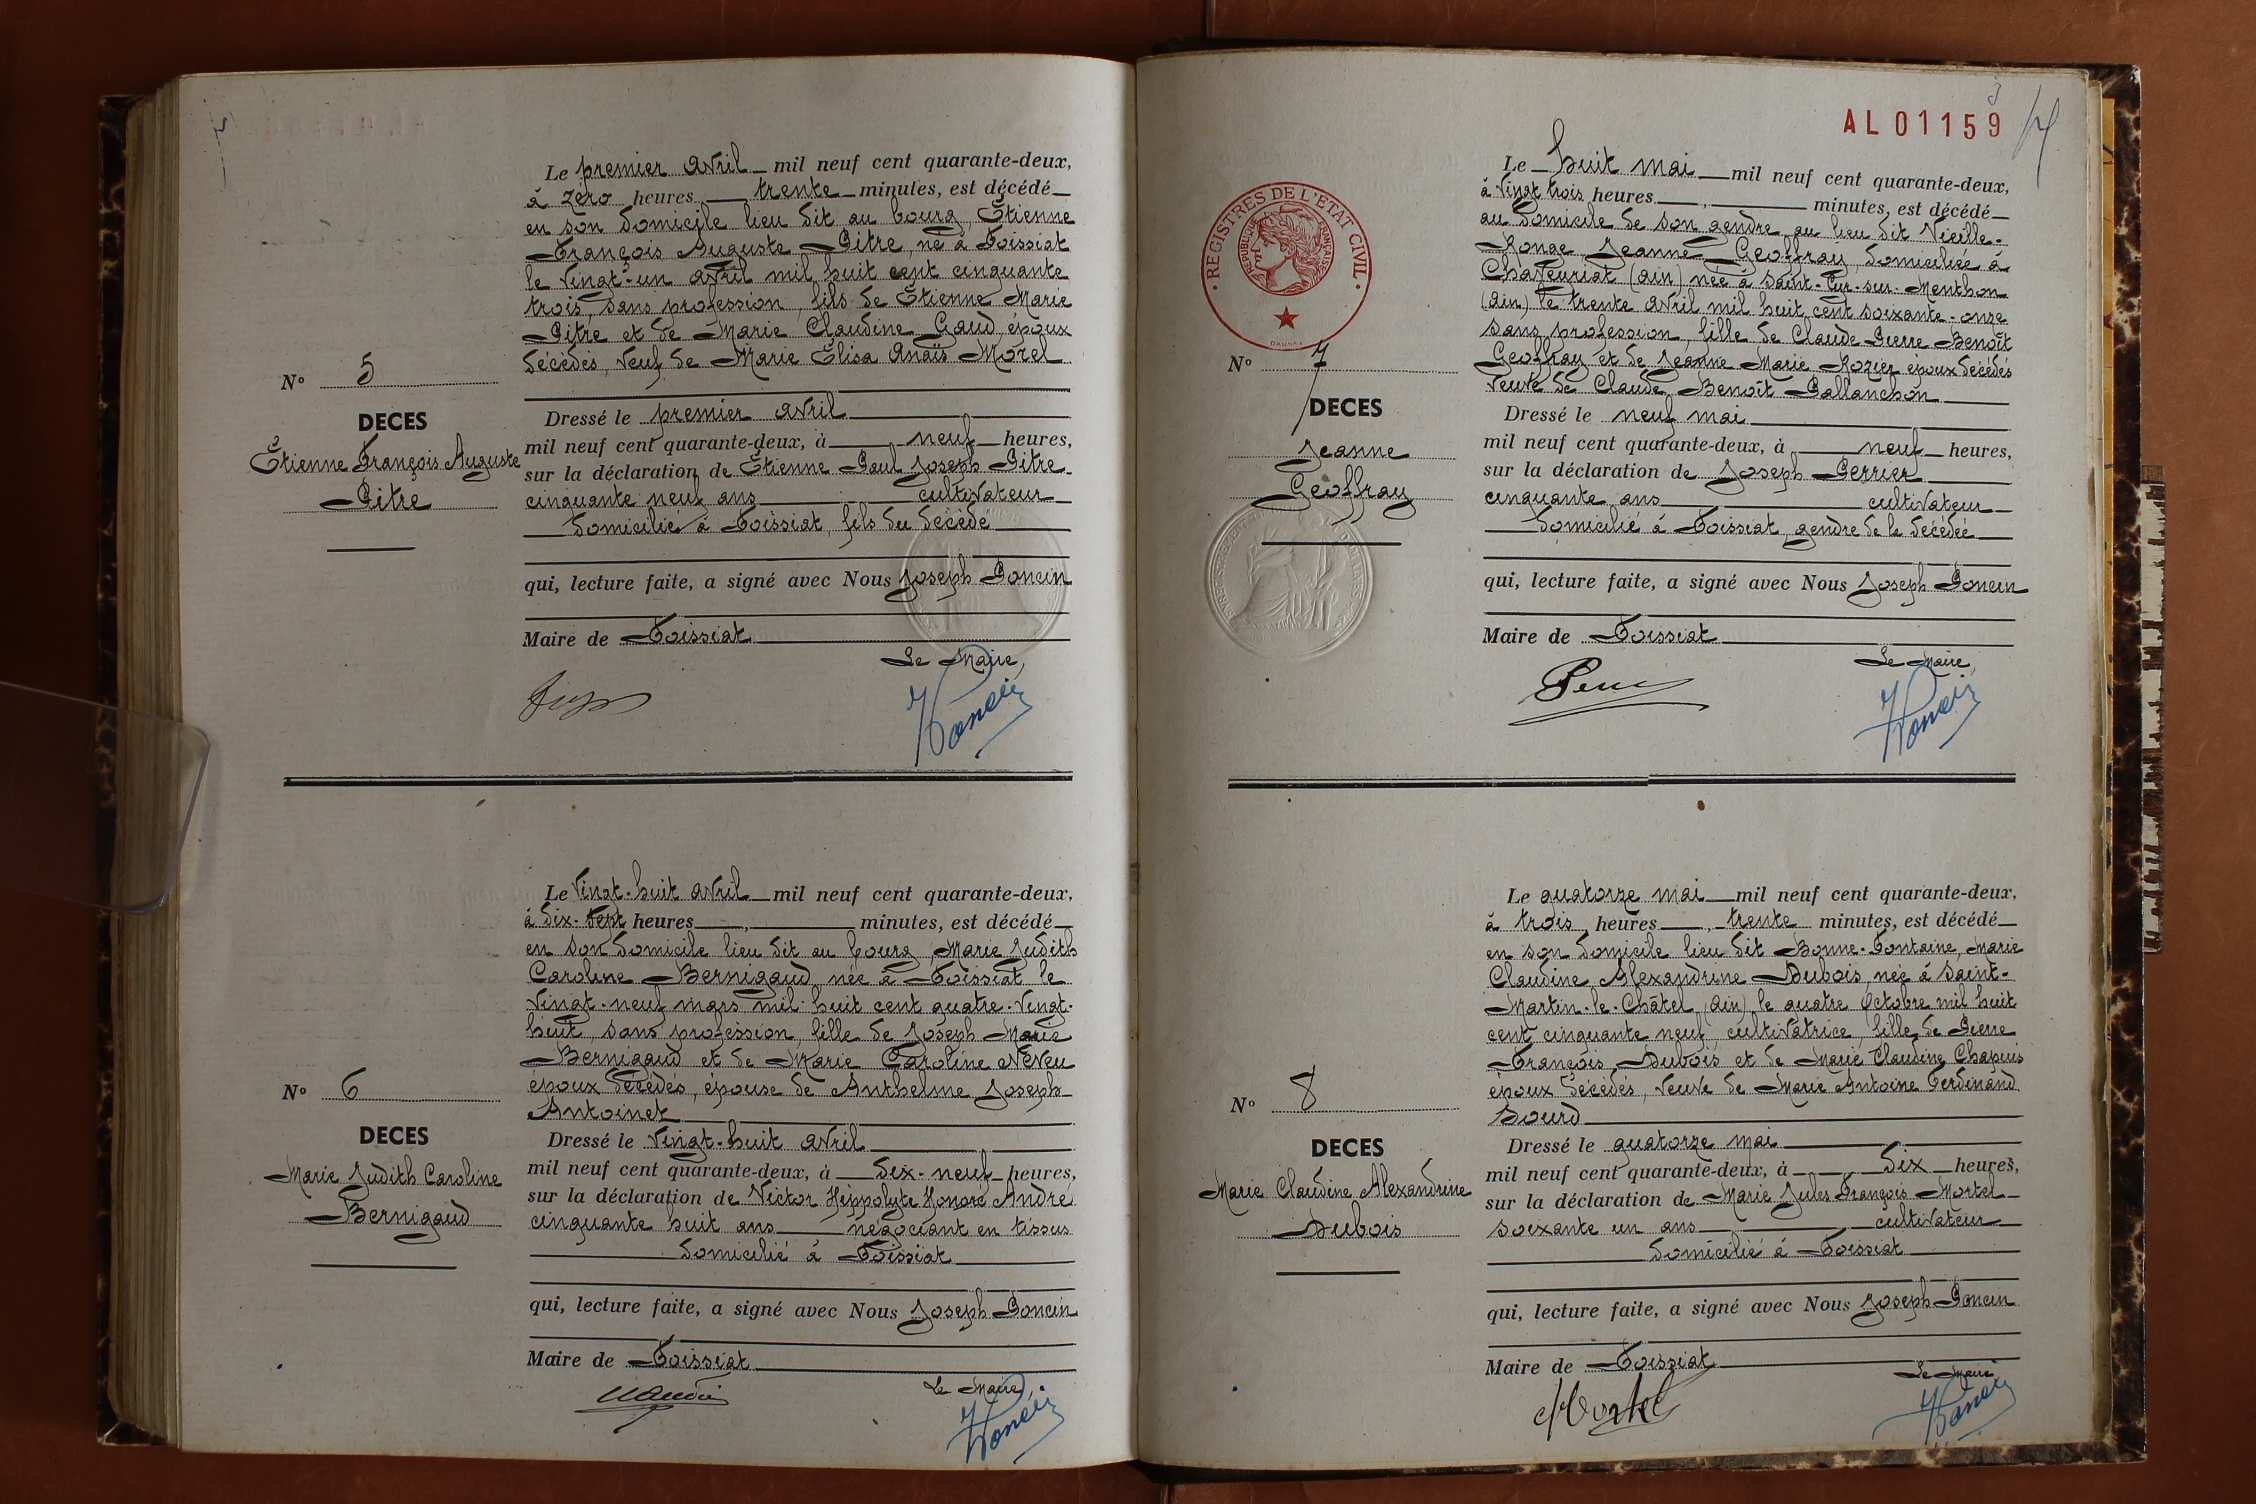 Le premier avril mil neuf cent quarante-deux,
à zéro heures trente minutes, est décédé
en son domicile lieu dit au bourg, Étienne
François Auguste Pitre, né à Foissiat
le vingt-un avril mil huit cent cinquante
trois, sans profession, fils de Étienne Marie
Pitre et de Marie Claudine Gaud, époux
décédés, veuf de Marie Élisa Anaïs Morel
N° 5
DECES
Étienne François Auguste
Pitre
Dressé le premier avril
mil neuf cent quarante-deux, à neuf heures,
sur la déclaration de Étienne Paul Joseph Pitre
cinquante neuf ans cultivateur
domicilié à Foissiat, fils du décédé
qui, lecture faite, a signé avec Nous Joseph Poncin
Maire de Foissiat
Le Maire,
Poncin
Le vingt-huit avril mil neuf cent quarante-deux,
à dix-sept heures, minutes, est décédé
en son domicile lieu dit au bourg, Marie Judith
Caroline Bernigaud née à Foissiat le
vingt-neuf mars mil huit cent quatre-vingt-
huit, sans profession, fille de Joseph Marie
Bernigaud et de Marie Caroline Neveu
époux décédés, épouse de Anthelme Joseph
Antoinet
N° 6
DECES
Marie Judith Caroline
Bernigaud
Dressé le vingt-huit avril
mil neuf cent quarante-deux, à dix-neuf heures,
sur la déclaration de Victor Hippolyte Honoré André
cinquante huit ans négociant en tissus
domicilié à Foissiat
qui, lecture faite, a signé avec Nous Joseph Poncin
Maire de Foissiat
Le Maire,
Poncin
AL 01159
3
REGISTRES DE L'ETAT CIVIL
REPUBLIQUE FRANCAISE
Le huit mai mil neuf cent quarante-deux,
à vingt trois heures, minutes, est décédé
au domicile de son gendre au lieu dit Vieille-
Ronge Jeanne Geoffray, domiciliée à
Chaveyriat (Ain) née à Saint-Cyr-sur-Menthon
(Ain) le trente avril mil huit cent soixante-onze
sans profession, fille de Claude Pierre Benoît
Geoffray et de Jeanne Marie Rozier époux décédés
veuve de Claude Benoît Pallanchon
N° 7
DECES
Jeanne
Geoffray
Dressé le neuf mai
mil neuf cent quarante-deux, à neuf heures,
sur la déclaration de Joseph Perrier
cinquante ans cultivateur
domicilié à Foissiat, gendre de la décédée
qui, lecture faite, a signé avec Nous Joseph Poncin
Maire de Foissiat
Le Maire,
Poncin
Le quatorze mai mil neuf cent quarante-deux,
à trois heures, trente minutes, est décédé
en son domicile lieu dit Bonne-Fontaine, Marie
Claudine Alexandrine Dubois, née à Saint-
Martin-le-Châtel (Ain) le quatre Octobre mil huit
cent cinquante neuf, cultivatrice, fille de Pierre
François Dubois et de Marie Claudine Chapuis
époux décédés, veuve de Marie Antoine Ferdinand
Bourd
N° 8
DECES
Marie Claudine Alexandrine
Dubois
Dressé le quatorze mai
mil neuf cent quarante-deux, à dix heures,
sur la déclaration de Marie Jules François Mortel
soixante un ans cultivateur
domicilié à Foissiat
qui, lecture faite, a signé avec Nous Joseph Poncin
Maire de Foissiat
Le Maire
Mortel
Poncin